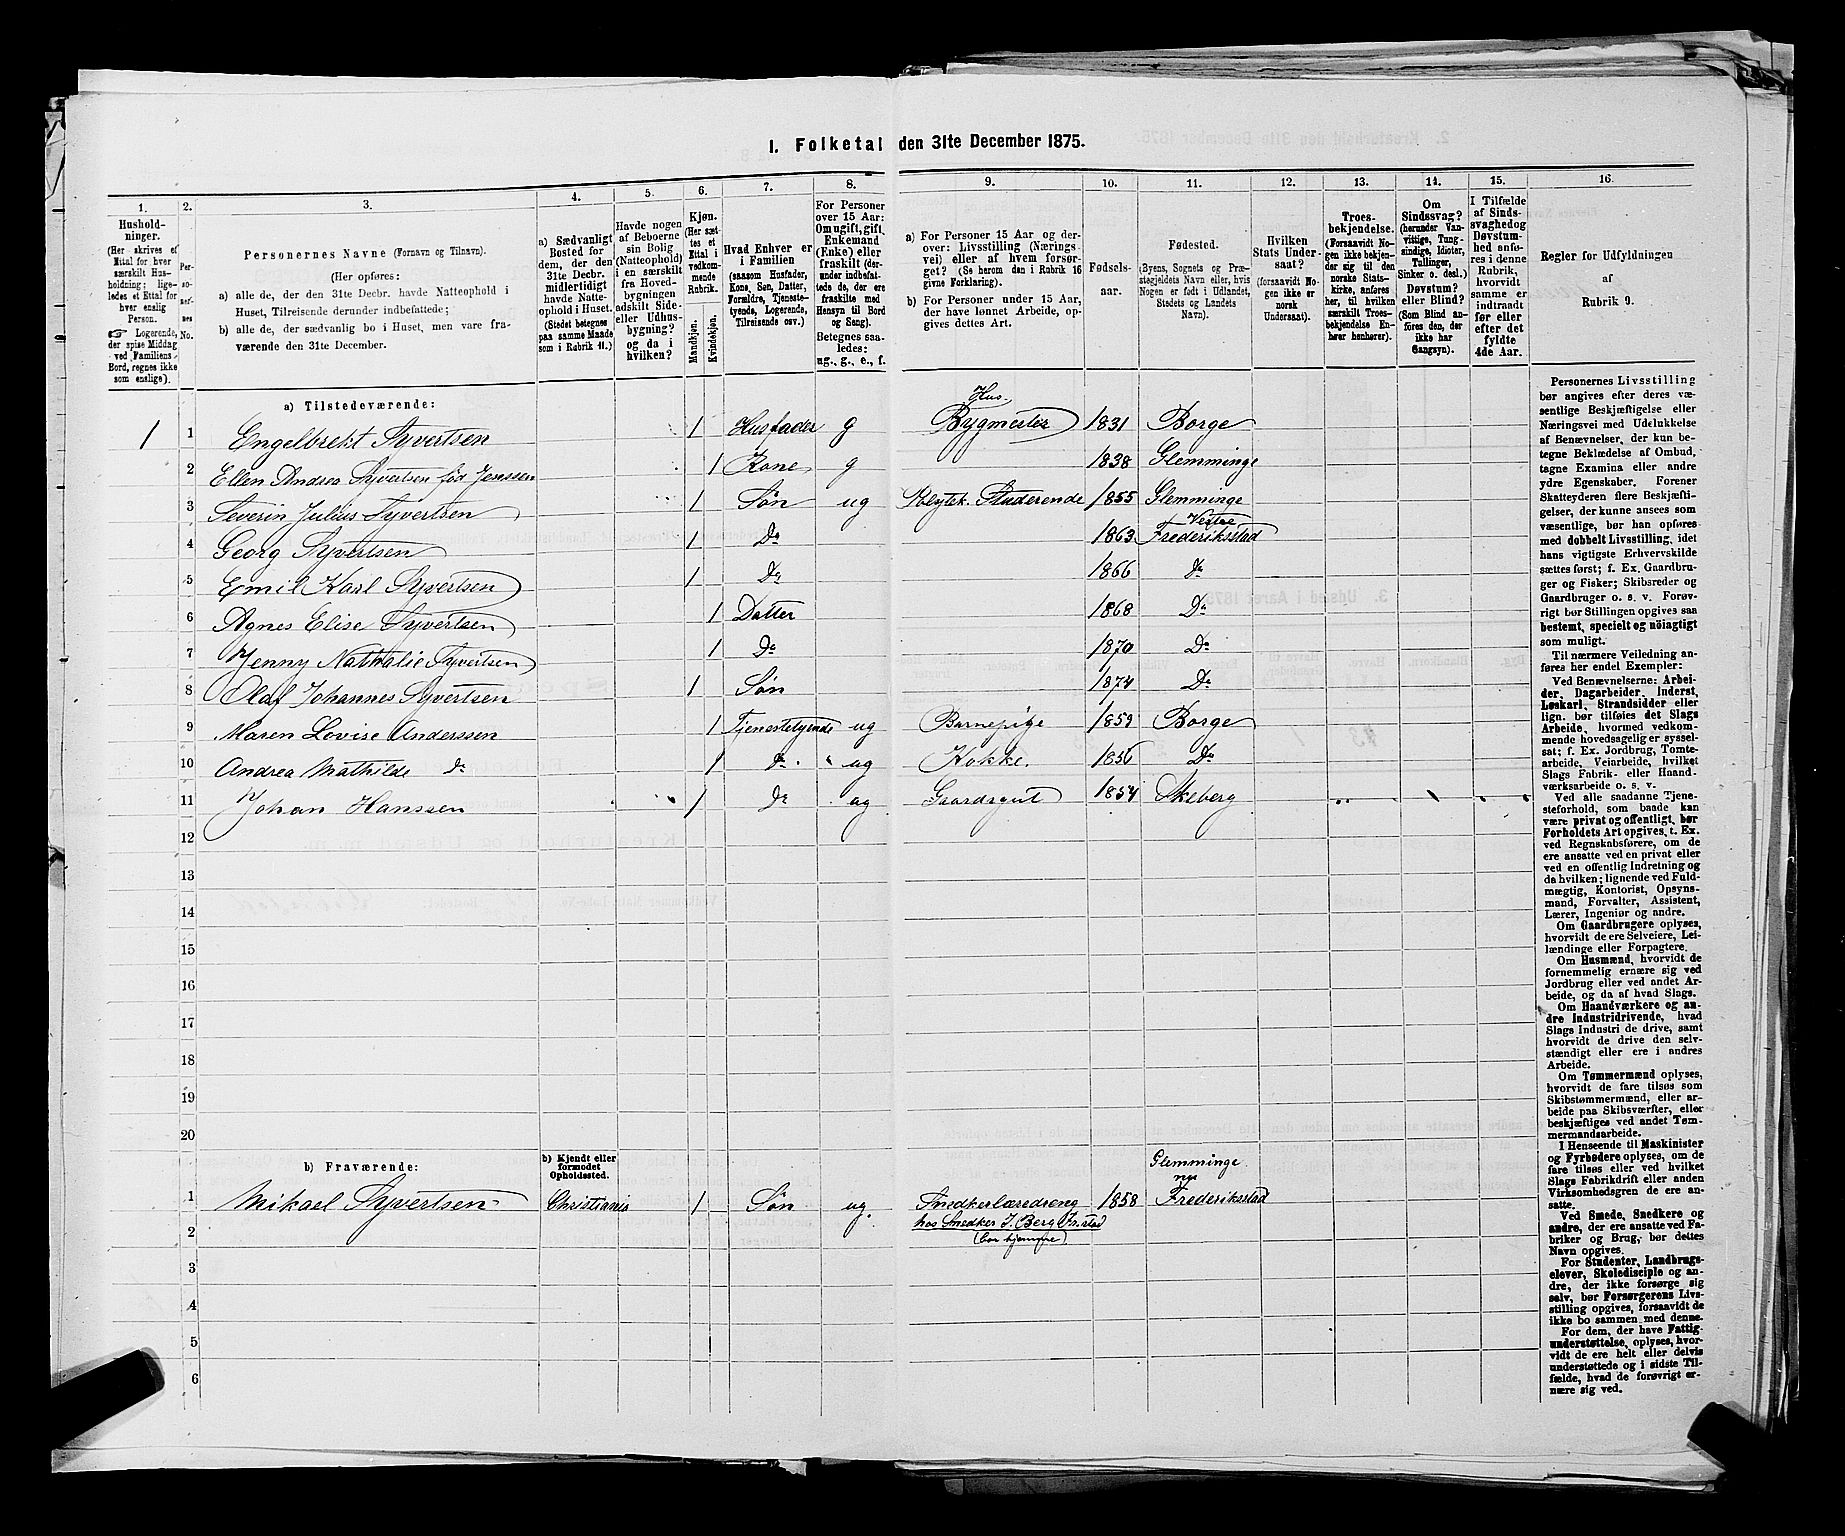 1. Folketal den 31te December 1875.
1. 2. 3. 4. 5. 6. 7. 8. 9. 10. 11. 12. 13. 14. 15. 16.
Hushold-
ninger.
(Her skrives et
Ettal for hver
særskilt Hus-
holdning; lige-
ledes et Ettal for
hver enslig
Person.
☞ Logerende,
der spise Middag
ved Familiens
Bord, regnes ikke
som enslige).
Per-
so-
ner-
nes
No.
Personernes Navne (Fornavn og Tilnavn).
(Her opføres:
a) alle de, der den 31te Decbr. havde Natteophold i
Huset, Tilreisende derunder indbefattede;
b) alle de, der sædvanlig bo i Huset, men vare fra-
værende den 31te December.
a) Sædvanligt
Bosted for
dem, der den
31te Decbr.
midlertidigt
havde Natte-
ophold i Huset.
(Stedet betegnes
paa samme Maade
som i Rubrik 11.)
Havde nogen
af Beboerne
sin Bolig
(Natteophold)
i en særskilt
fra Hoved-
bygningen
adskilt Side-
eller Udhus-
bygning?
og da i
hvilken?
Kjøn.
(Her sæt-
tes et
Ettal i
vedkom-
mende
Rubrik.
Mandkjøn.
Kvindekjøn.
Hvad Enhver er
i Familien
(saasom Husfader,
Kone, Søn, Datter,
Forældre, Tjeneste-
tyende, Logerende,
Tilreisende osv.)
For Personer
over 15 Aar:
Om ugift, gift,
Enkemand
(Enke) eller
fraskilt (der-
under indbefat-
tede de, der ere
fraskilte med
Hensyn til Bord
og Seng).
Betegnes saa-
ledes:
ug., g., e., f.
a) For Personer 15 Aar og der-
over: Livsstilling (Nærings-
vei) eller af hvem forsør-
get? (Se herom den i Rubrik 16
givne Forklaring).
b) For Personer under 15 Aar,
der have lønnet Arbeide, op-
gives dettes Art.
Fødsels-
aar.
Fødested.
(Byens, Sognets og Præ-
stegjeldets Navn eller, hvis
Nogen er født i Udlandet,
Stedets og Landets
Navn).
Hvilken
Stats Under-
saat?
(forsaavidt No-
gen ikke er
norsk
Undersaat).
Troes-
bekjendelse.
(Forsaavidt No-
gen ikke bekjen-
der sig til den
norske Stats-
kirke, anføres
her, til hvilken
særskilt Troes-
bekjendelse En-
hver henhører).
Om
Sindssvag?
(herunder Van-
vittige, Tung-
sindige, Idioter,
Tullinger,
Sinker o. desl.)
Døvstum?
eller Blind?
(Som Blind an-
føres den, der
ikke har
Gangsyn).
I Tilfælde
af Sinds-
svaghed og
Døvstum-
hed anfø-
res i denne
Rubrik,
hvorvidt
samme er
indtraadt
før eller
efter det
fyldte
4de Aar.
Regler for Udfyldningen
af
Rubrik 9.
a) Tilstedeværende:
Hus-
1 1 Engelbrekt Syvertsen 1 Husfader g Bygmester 1831 Borge
2 Ellen Andrea Syvertsen fød Jenssen 1 Kone g 1838 Glemminge
3 Severin Julius Syvertsen 1 Søn ug Polytek. Studerende 1855 Glemminge
Vestre
4 Georg Syvertsen 1 Do 1863 Frederiksstad
5 Emil Karl Syvertsen 1 Do 1866 Do
6 Agnes Elise Syvertsen 1 Datter 1868 Do
7 Jenny Nathalie Syvertsen 1 Do 1870 Do
8 Olaf Johannes Syvertsen 1 Søn 1874 Do
9 Maren Lovise Anderssen 1 Tjenestetyende ug Barnepige 1859 Borge
10 Andrea Mathilde Do 1 Do ug Kokke. 1856 Do
11 Johan Hanssen 1 Do ug Gaardsgut 1854 Skeberg
12
13
14
15
16
17
18
19
20
b) Fraværende:
b) Kjendt eller
formodet
Opholdssted.
Glemminge
nu
1 Mikael Syvertsen Christiania 1 Søn ug. Snedkerlæredreng 1858 Frederiksstad
2 hos Snedker J. Berg
3
4
5
6
Personernes Livsstilling
bør angives efter deres væ-
sentlige Beskjæftigelse eller
Næringsvei med Udelukkelse
af Benævnelser, der kun be-
tegne Beklædelse af Ombud,
tagne Examina eller andre
ydre Egenskaber. Forener
Skatteyderen flere Beskjæfti-
gelser, der kunne ansees som
væsentlige, bør han opføres
med dobbelt Livsstilling, idet
hans vigtigste Erhvervskilde
sættes først; f. Ex. Gaardbru-
ger og Fisker; Skibsreder og
Gaardbruger o. s. v. Forøv-
rigt bør Stillingen opgives saa
bestemt, specielt og nöiagtigt
som muligt.
Til nærmere Veiledning an-
føres her endel Exempler:
Ved Benævnelserne: Arbei-
der, Dagarbeider, Inderst,
Løskarl, Strandsidder eller
lign. bør tilføies det Slags
Arbeide, hvormed vedkom-
mende hovedsagelig er syssel-
sat; f. Ex. Jordbrug, Tomte-
arbeide, Veiarbeide, hvilket
Slags Fabrik- eller Haand-
værksarbeide o. s. v.
Ved alle saadanne Tjene-
steforhold, som baade kan
være privat og offentligt, bør
Forholdets Art opgives, t. Ex.
ved Regnskabsførere, om de
ere ansatte ved en privat eller
ved en offentlig Indretning og
da hvilken; lignende ved Fuld-
mægtig, Kontorist, Opsyns-
mand, Forvalter, Assistent,
Lærer, Ingeniør og andre.
Om Gaardbrugere oplyses,
hvorvidt de ere Selveiere, Lei-
lændinge eller Forpagtere.
Om Husmænd, hvorvidt de
fornemmelig ernære sig ved
Jordbrug eller ved andet Ar-
beide, og da af hvad Slags.
Om Haandværkere og an-
dre Industridrivende, hvad
Slags Industri de drive, samt
hvorvidt de drive den selv-
stændigt eller ere i andres
Arbeide.
Om Tømmermænd oplyses,
hvorvidt de fare tilsøs som
Skibstømmermænd, eller ar-
beide paa Skibsværfter, eller
beskjæftiges ved andet Tøm-
mermandsarbeide.
I Henseende til Maskinister
og Fyrbødere oplyses, om de
fare tilsøs eller ved hvilket
Slags Fabrikdrift eller anden
Virksomhedsgren de ere an-
satte.
Ved Smede, Snedkere og
andre, der ere ansatte ved Fa-
briker og Brug, bør dettes
Navn opgives.
For Studenter, Landbrugs-
elever, Skoledisciple og an-
dre, der ikke forsørge sig
selv, bør Forsørgerens Livs-
stilling opgives, forsaavidt de
ikke bo sammen med denne.
For dem, der have Fattig-
understøttelse, oplyses, hvor-
vidt de ere helt eller delvis
understøttede og i sidste Til-
fælde, hvad de forøvrigt er-
nære sig ved.